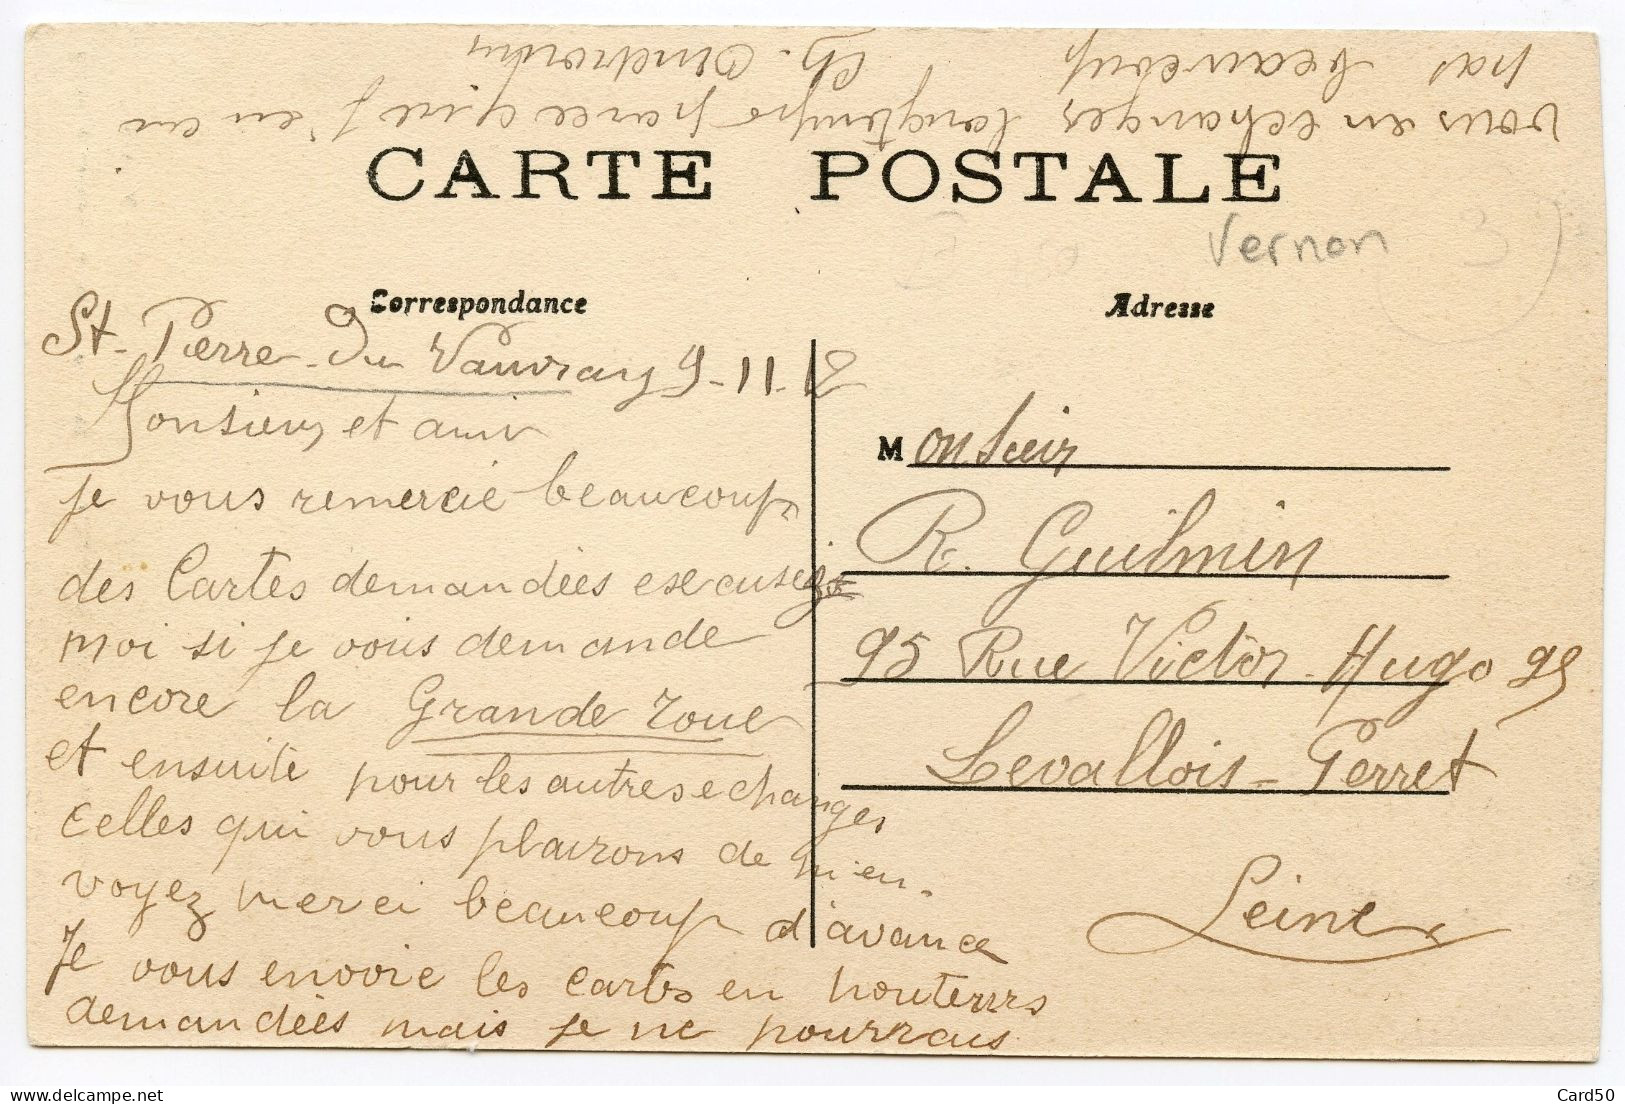 CARTE POSTALE
Vernon
Correspondance
St-Pierre-Du Vauvray 9-11-12
Monsieur et ami
je vous remercie beaucoup
des Cartes demandées excusez
moi si je vous demande
encore la Grande roue
et ensuite pour les autres echanges
celles qui vous plairons de m'en-
voyez merci beaucoup d'avance
Je vous envoie les cartes en
demandées mais je ne pourrais
vous en echanges longtemps parce que j'en ai
pas beaucoup Ch.
Adresse
Monsieur
R. Guilmin
95 Rue Victor-Hugo 95
Levallois-Perret
Seine
Card50